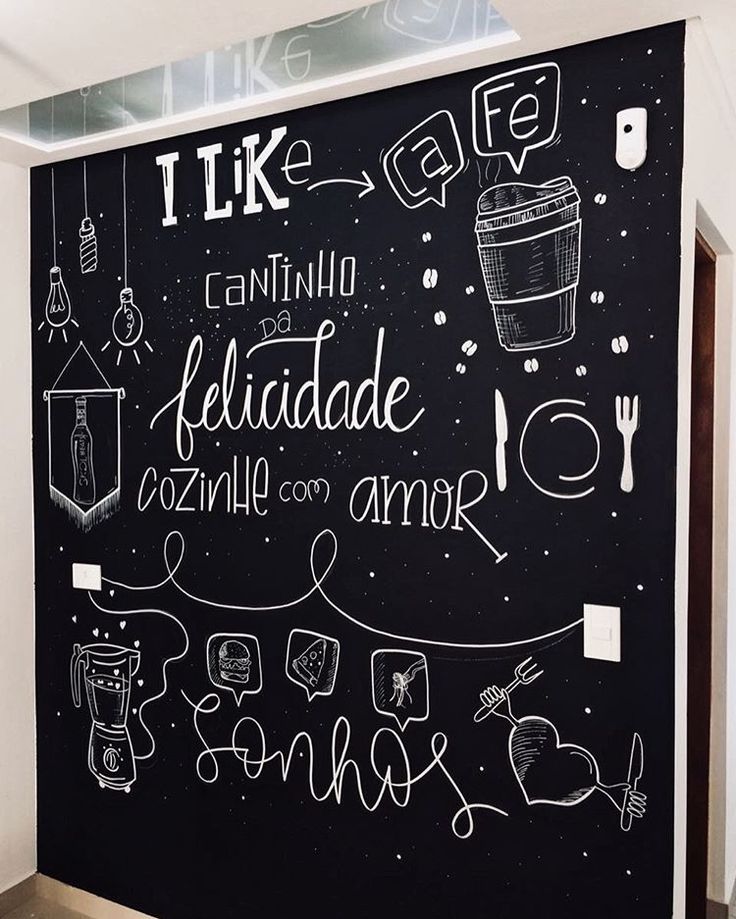 I LiKe Ca Fé
CaNTiNHO
Da
felicidade
COZiNHe com amOR
Sonhos